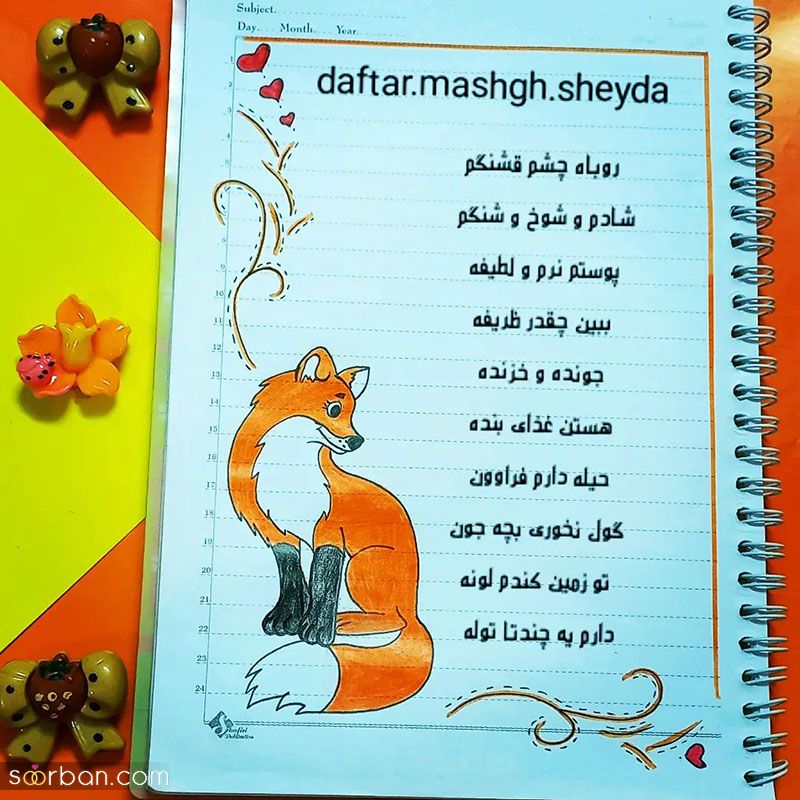 Subject.
Day. Month. Year.
daftar.mashgh.sheyda
روباه چشم قشنگم
شادم و شوخ و شنگم
پوستم نرم و لطیفه
ببین چقدر ظریفه
جونده و خزنده
هستن غذای بنده
حیله دارم فراوون
گول نخوری بچه جون
تو زمین کندم لونه
دارم یه چندتا توله
1
2
3
4
5
6
7
8
9
10
11
12
13
14
15
16
17
18
19
20
21
22
23
24
soorban.com